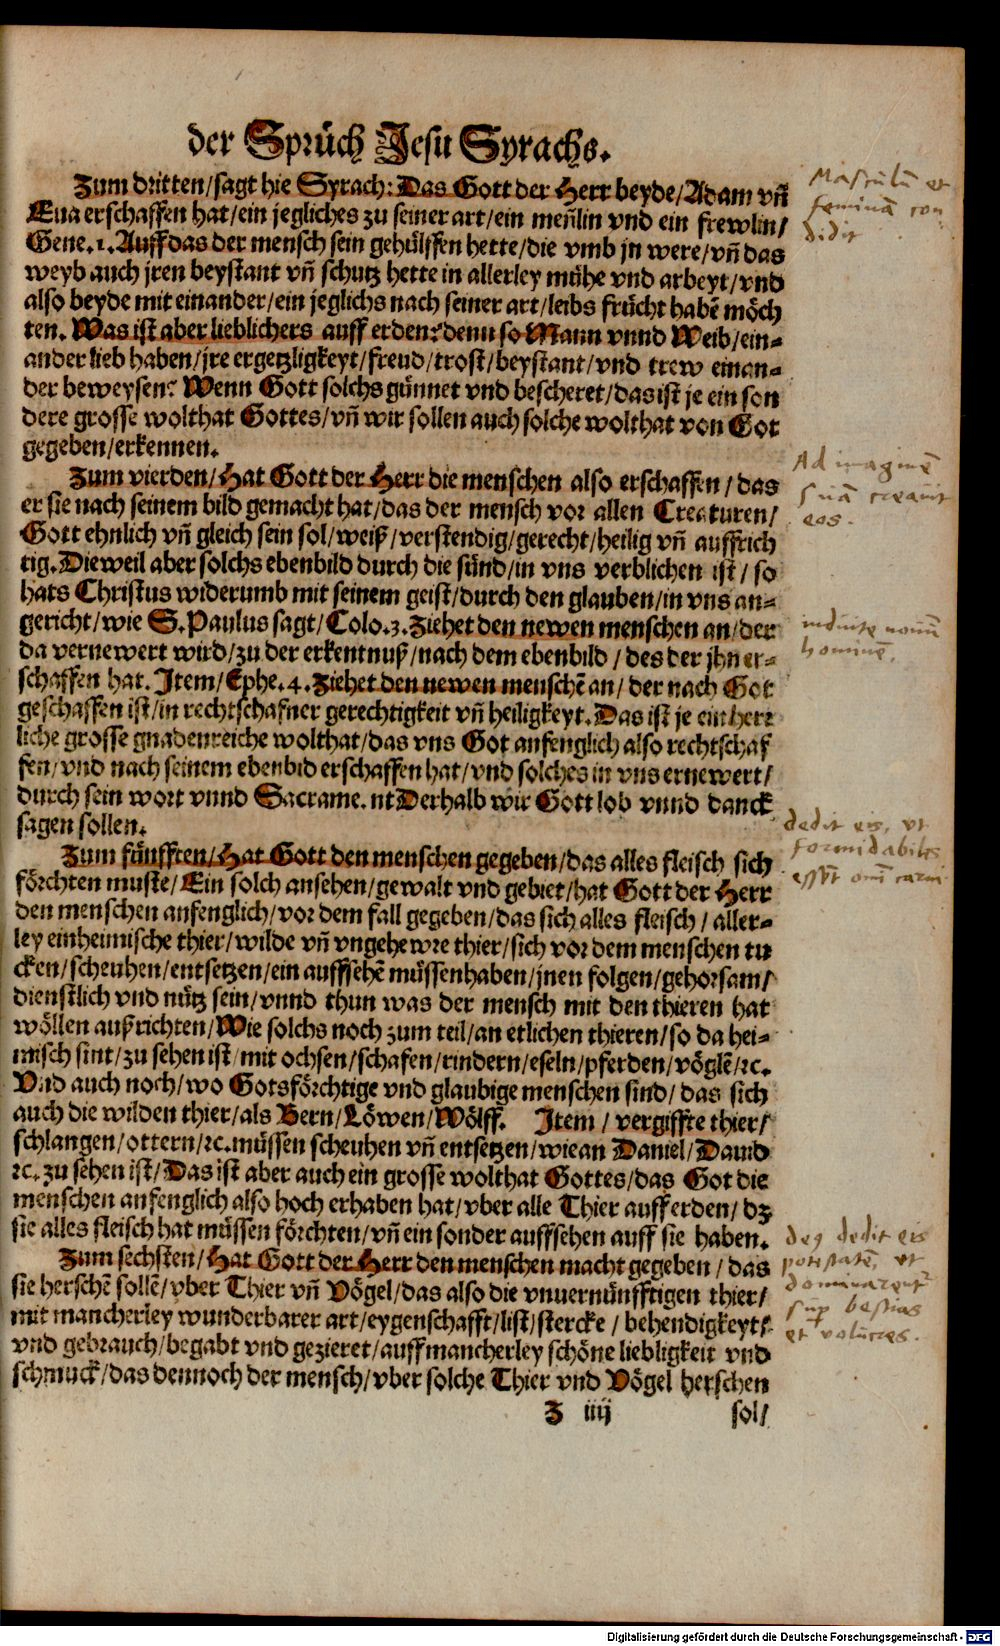 der Sprüch Jesu Syrachs.
Zum dritten/sagt hie Syrach: Das Gott der Herr beyde/Adam vñ
Eua erschaffen hat/ein jegliches zu seiner art/ein meñlin vnd ein frewlin/
Gene.1. Auff das der mensch sein gehülffen hette/die vmb jn were/vñ das
weyb auch jren beystant vñ schutz hette in allerley mühe vnd arbeyt/vnd
also beyde mit einander/ein jeglichs nach seiner art/leibs frücht habẽ möch
ten. Was ist aber lieblichers auff erden? denn so Mann vnnd Weib/ein=
ander lieb haben/jre ergetzligkeyt/freud/trost/beystant/vnd trew einan=
der beweysen? Wenn Gott solchs günnet vnd bescheret/das ist je ein son
dere grosse wolthat Gottes/vñ wir sollen auch solche wolthat von Got
gegeben/erkennen.
Zum vierden/Hat Gott der Herr die menschen also erschaffen/das
er sie nach seinem bild gemacht hat/das der mensch vor allen Creaturen/
Gott ehnlich vñ gleich sein sol/weiß/verstendig/gerecht/heilig vñ auffrich
tig. Dieweil aber solchs ebenbild durch die sünd/in vns verblichen ist/so
hats Christus widerumb mit seinem geist/durch den glauben/in vns an=
gericht/wie S. Paulus sagt/Colo.3. Ziehet den newen menschen an/der
da vernewert wird/zu der erkentnuß/nach dem ebenbild/des der jhn er=
schaffen hat. Item/Ephe.4. Ziehet den newen menschẽ an/der nach Got
geschaffen ist/in rechtschafner gerechtigkeit vñ heiligkeyt. Das ist je ein herr
liche grosse gnadenreiche wolthat/das vns Got anfenglich also rechtschaf
fen/vnd nach seinem ebenbid erschaffen hat/vnd solches in vns ernewert/
durch sein wort vnnd Sacrame.nt Derhalb wir Gott lob vnnd danck
sagen sollen.
Zum fünfften/Hat Gott den menschen gegeben/das alles fleisch sich
förchten muste/Ein solch ansehen/gewalt vnd gebiet/hat Gott der Herr
den menschen anfenglich/vor dem fall gegeben/das sich alles fleisch/aller=
ley einheimische thier/wilde vñ vngehewre thier/sich vor dem menschen tu
cken/scheuhen/entsetzen/ein auffsehẽ müssen haben/jnen folgen/gehorsam/
dienstlich vnd nütz sein/vnnd thun was der mensch mit den thieren hat
wöllen außrichten/Wie solchs noch zum teil/an etlichen thieren/so da hei=
misch sint/zu sehen ist/mit ochsen/schafen/rindern/eseln/pferden/vöglẽ/ꝛc.
Vnd auch noch/wo Gotsförchtige vnd glaubige menschen sind/das sich
auch die wilden thier/als Bern/Löwen/Wölff. Item/vergiffte thier/
schlangen/ottern/ꝛc. müssen scheuhen vñ entsetzen/wie an Daniel/Dauid
ꝛc. zu sehen ist/Das ist aber auch ein grosse wolthat Gottes/das Got die
menschen anfenglich also hoch erhaben hat/vber alle Thier auff erden/dz
sie alles fleisch hat müssen förchten/vñ ein sonder auffsehen auff sie haben.
Zum sechsten/Hat Gott der Herr den menschen macht gegeben/das
sie herschẽ sollẽ/vber Thier vñ Vögel/das also die vnuernünfftigen thier/
mit mancherley wunderbarer art/eygenschafft/list/stercke/behendigkeyt/
vnd gebrauch/begabt vnd gezieret/auff mancherley schöne liebligkeit vnd
schmuck/das dennoch der mensch/vber solche Thier vnd Vögel herschen
Z iiij sol/
Masculũ et
feminã con
didit
Ad imaginẽ
suã creauit
eos.
induite nouũ
hominẽ.
dedit eis, ut
formidabiles
essẽt omi carni
dedit eis
potestatẽ, ut
dominarent
sup bestias
et volucres.
Digitalisierung gefördert durch die Deutsche Forschungsgemeinschaft - DFG